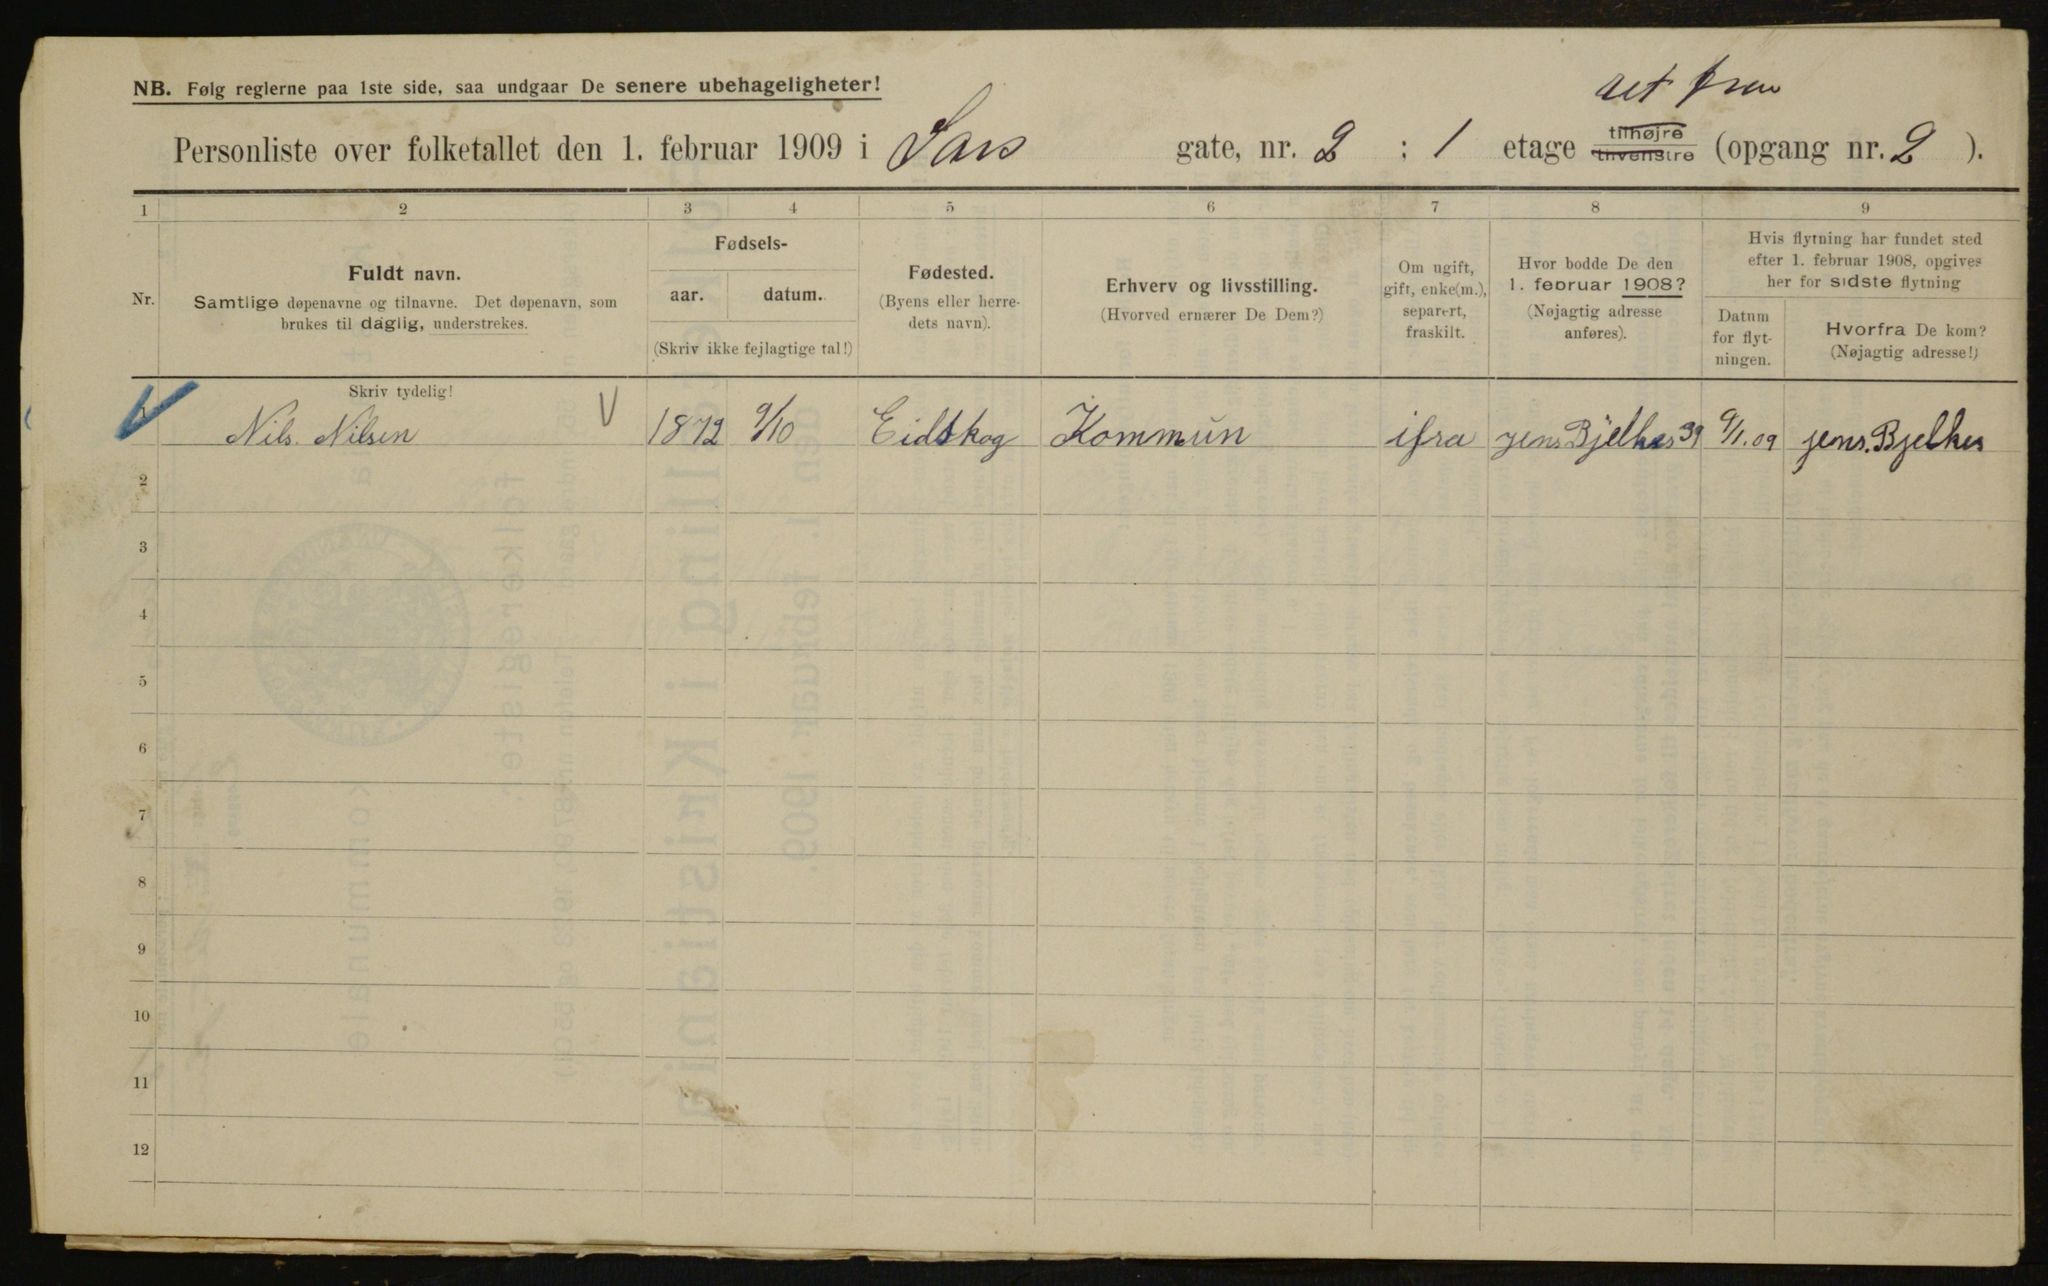 NB. Følg reglerne paa 1ste side, saa undgaar De senere ubehageligheter!
ret frem
Personliste over folketallet den 1. februar 1909 i Sars gate, nr. 2 : 1 etage tilhøjre tilvenstre (opgang nr. 2 ).
1 2 3 4 5 6 7 8 9
Nr.
Fuldt navn.
Samtlige døpenavne og tilnavne. Det døpenavn, som
brukes til daglig, understrekes.
Fødsels-
aar. datum.
(Skriv ikke fejlagtige tal!)
Fødested.
(Byens eller herre-
dets navn).
Erhverv og livsstilling.
(Hvorved ernærer De Dem?)
Om ugift,
gift, enke(m.),
separert,
fraskilt.
Hvor bodde De den
1. februar 1908?
(Nøjagtig adresse
anføres).
Hvis flytning har fundet sted
efter 1. februar 1908, opgives
her for sidste flytning
Datum
for flyt-
ningen.
Hvorfra De kom?
(Nøjagtig adresse!)
Skriv tydelig!
1 Nils. Nilsen 1872 9/10 Eidskog Kommun ifra jens Bjelkes 39 9/1.09 jens. Bjelkes
2
3
4
5
6
7
8
9
10
11
12